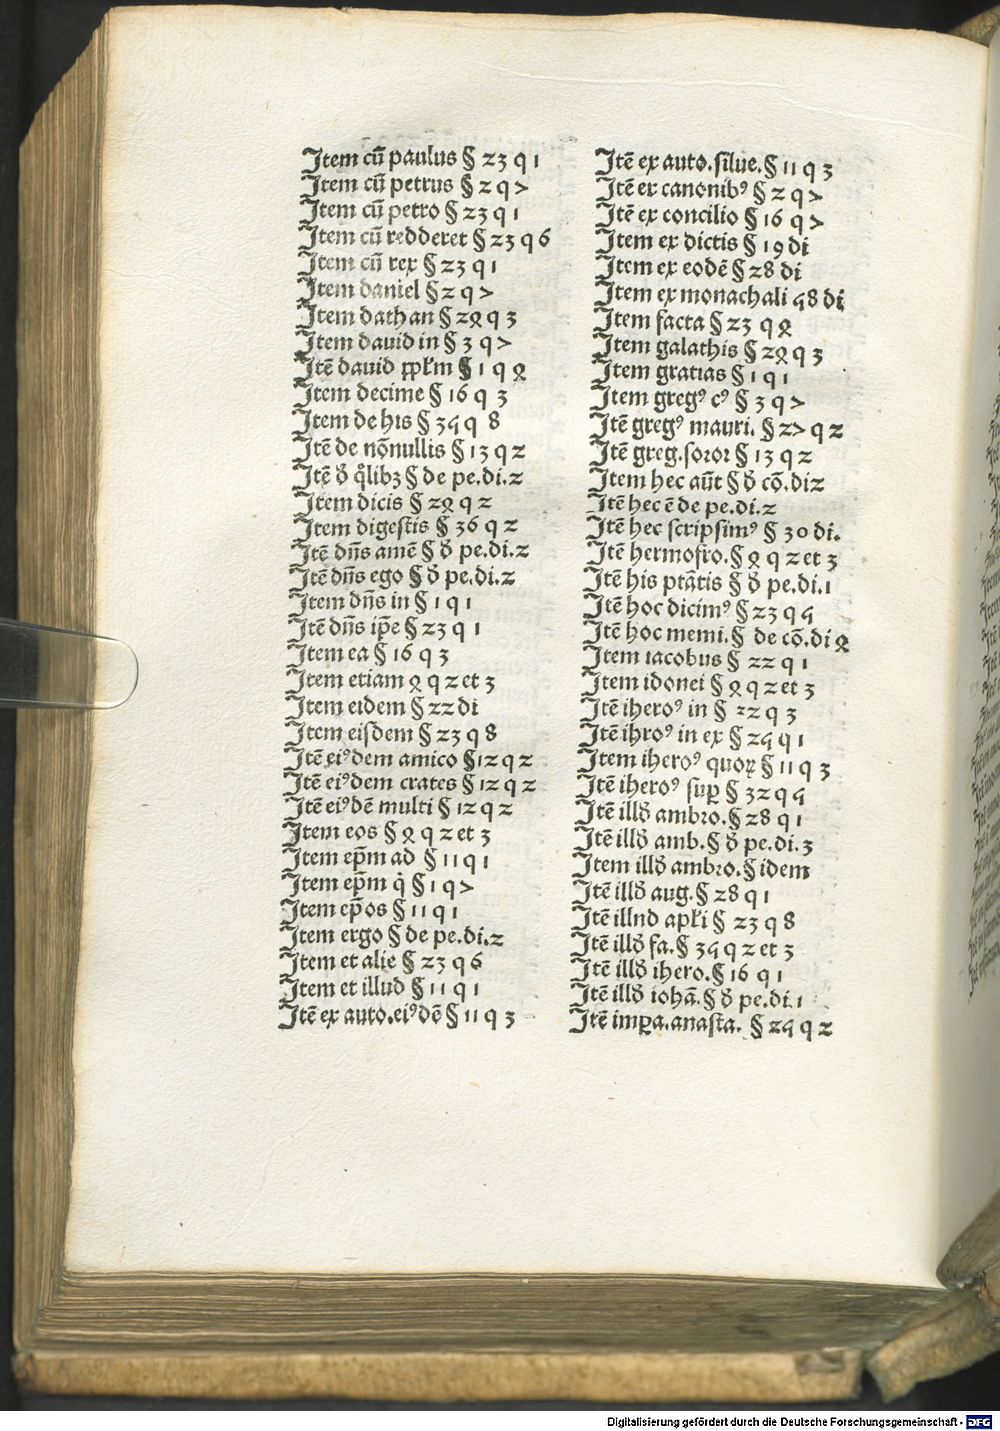 Item cū paulus § 23 q 1
Item cū petrus § 2 q 7
Item cū petro § 23 q 1
Item cū redderet § 23 q 6
Item cū rex § 23 q 1
Item daniel § 2 q 7
Item dathan § 24 q 3
Item dauid in § 3 q 7
Itē dauid § 1 q 4
Item decime § 16 q 3
Item de his § 35 q 8
Itē de nōnullis § 13 q 2
Itē § de pe.di.2
Item dicis § 24 q 2
Item digestis § 36 q 2
Itē dn̄s amē § đ pe.di.2
Itē dn̄s ego § đ pe.di.2
Item dn̄s in § 1 q 1
Itē dn̄s ip̄e § 23 q 1
Item ea § 16 q 3
Item etiam 4 q 2 et 3
Item eidem § 22 di
Item eisdem § 23 q 8
Itē eiꝰdem amico § 12 q 2
Itē eiꝰdem crates § 12 q 2
Itē eiꝰdē multi § 12 q 2
Item eos § 4 q 2 et 3
Item ep̄m ad § 11 q 1
Item ep̄m § 1 q 7
Item ep̄os § 11 q 1
Item ergo § de pe.di.2
Item et alie § 23 q 6
Item et illud § 11 q 1
Itē ex auto.eiꝰdē § 11 q 3
Itē ex auto.silue.§ 11 q 3
Itē ex canonibꝰ § 2 q 7
Itē ex concilio § 16 q 7
Item ex dictis § 19 di
Item ex eodē § 28 di
Item ex monachali 58 di
Item facta § 23 q 4
Item galathis § 24 q 3
Item gratias § 1 q 1
Item gregꝰ cꝰ § 3 q 7
Itē gregꝰ mauri. § 27 q 2
Itē greg.soror § 13 q 2
Item hec aūt § đ cō.di 2
Itē hec ē de pe.di.2
Itē hec scripsimꝰ § 30 di.
Itē hermofro.§ 4 q 2 et 3
Itē his ptātis § đ pe.di.1
Itē hoc dicimꝰ § 23 q 5
Itē hoc memi.§ de cō.di 4
Item iacobus § 22 q 1
Item idonei § 4 q 2 et 3
Itē iheroꝰ in § 22 q 3
Itē ihroꝰ in ex § 25 q 1
Item iheroꝰ quoꝝ § 11 q 3
Itē iheroꝰ suꝑ § 32 q 5
Itē illđ ambro.§ 28 q 1
Itē illđ amb.§ đ pe.di.3
Item illđ ambro.§ idem
Itē illđ aug.§ 28 q 1
Itē illnd apłi § 23 q 8
Itē illđ fa.§ 35 q 2 et 3
Itē illđ ihero.§ 16 q 1
Itē illđ iohā.§ đ pe.di.1
Itē imꝑa.anasta. § 25 q 2
Digitalisierung gefördert durch die Deutsche Forschungsgemeinschaft - DFG